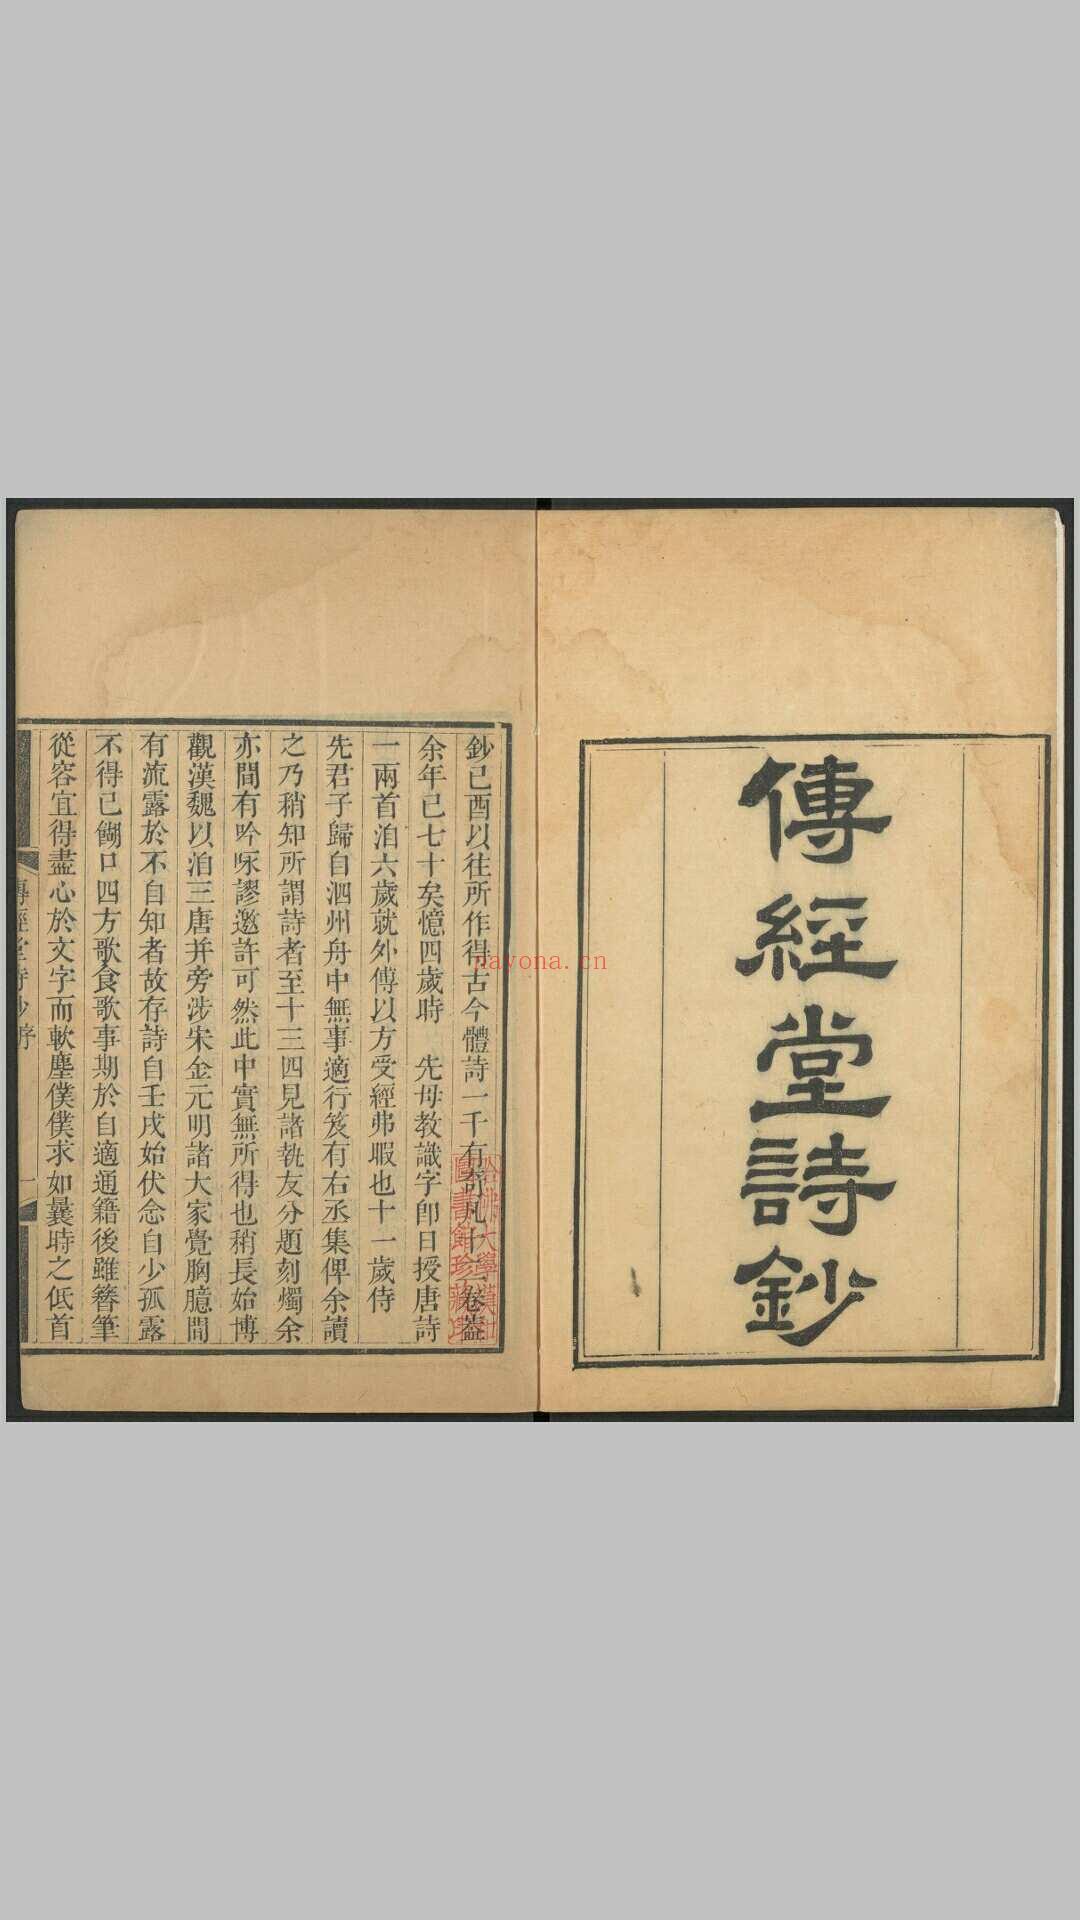 傳經堂詩鈔
鈔己酉以往所作得古今體詩一千有奇凡十二卷葢
余年已七十矣憶四歲時　先母教識字卽日授唐詩
一兩首洎六歲就外傅以方受經弗暇也十一歲侍
先君子歸自泗州舟中無事適行笈有右丞集俾余讀
之乃稍知所謂詩者至十三四見諸執友分題刻燭余
亦間有吟咏謬邀許可然此中實無所得也稍長始博
觀漢魏以洎三唐并旁涉宋金元明諸大家覺胸臆間
有流露於不自知者故存詩自壬戌始伏念自少孤露
不得已餬口四方歌食歌事期於自適通籍後雖簪筆
從容宜得盡心於文字而軟塵僕僕求如曩時之低首
傳經堂詩鈔 序 一
哈佛大學漢和
圖書館珍藏印
nayona.cn